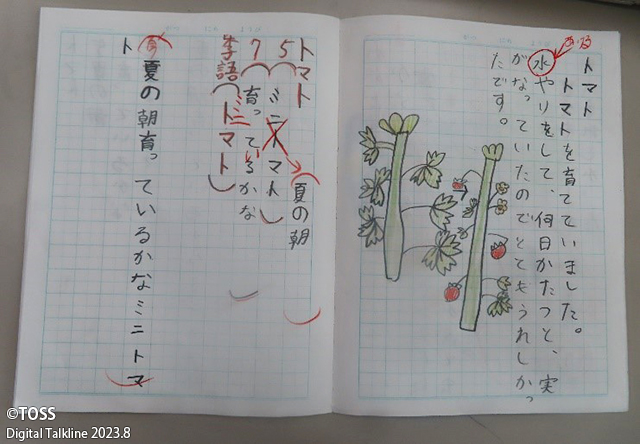 トマト
トマトを育てていました。
水やりをして、何日かたつと、実
がなっていたのでとてもうれしかっ
たです。
トマト 夏の朝
5 ミニトマト
7 育っているかな
季語 ミニトマト
夏の朝育っているかなミニトマ
ト
©TOSS
Digital Talkline 2023.8